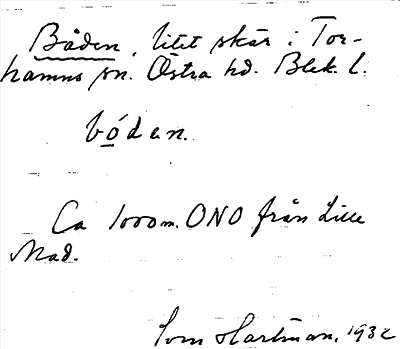 Båden, litet skär i Tor-
hamns sn. Östra hd. Blek. l.
bóden.
Ca 1000 m. ONO från Lille
Mad.
Hartman, 1932